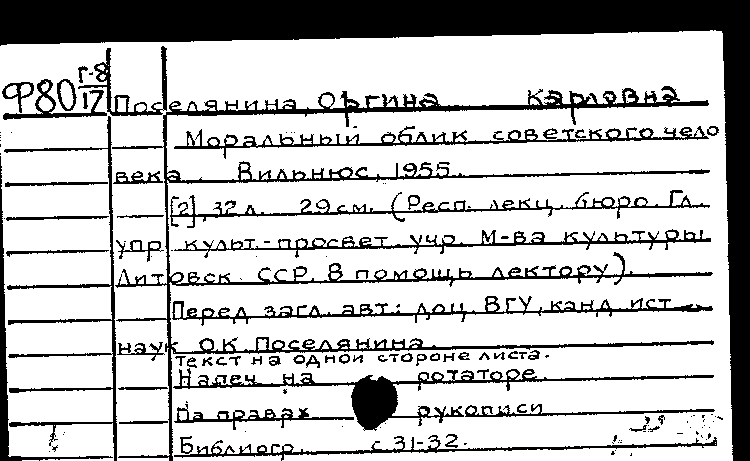 Ф80 Г-8/17
Поселянина, Оргина Карловна
Моральный облик советского чело
века. Вильнюс, 1955.
[2], 32 л. 29 см. (Респ. лекц. бюро. Гл.
упр. культ.-просвет. учр. М-ва культуры
Литовск. ССР. В помощь лектору).
Перед загл. авт.: доц. ВГУ, канд. ист.
наук О.К. Поселянина.
Текст на одной стороне листа.
Напеч. на ротаторе.
На правах рукописи
Библиогр. с. 31-32.